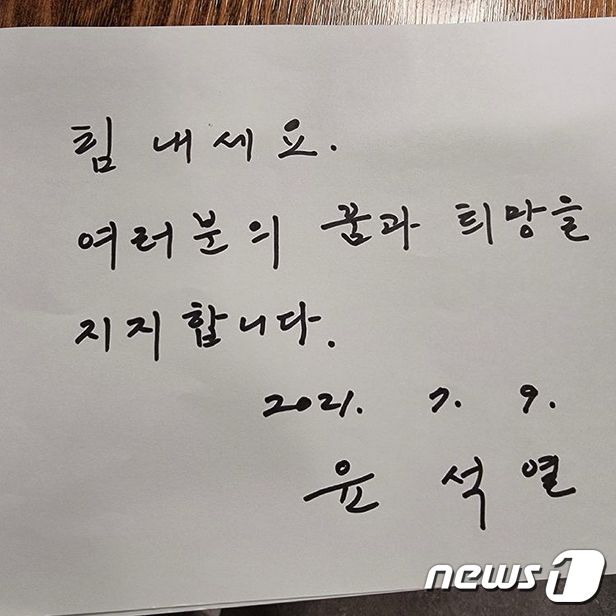 힘 내세요.
여러분의 꿈과 희망을
지지합니다.
2021. 7. 9.
윤 석 열
news1